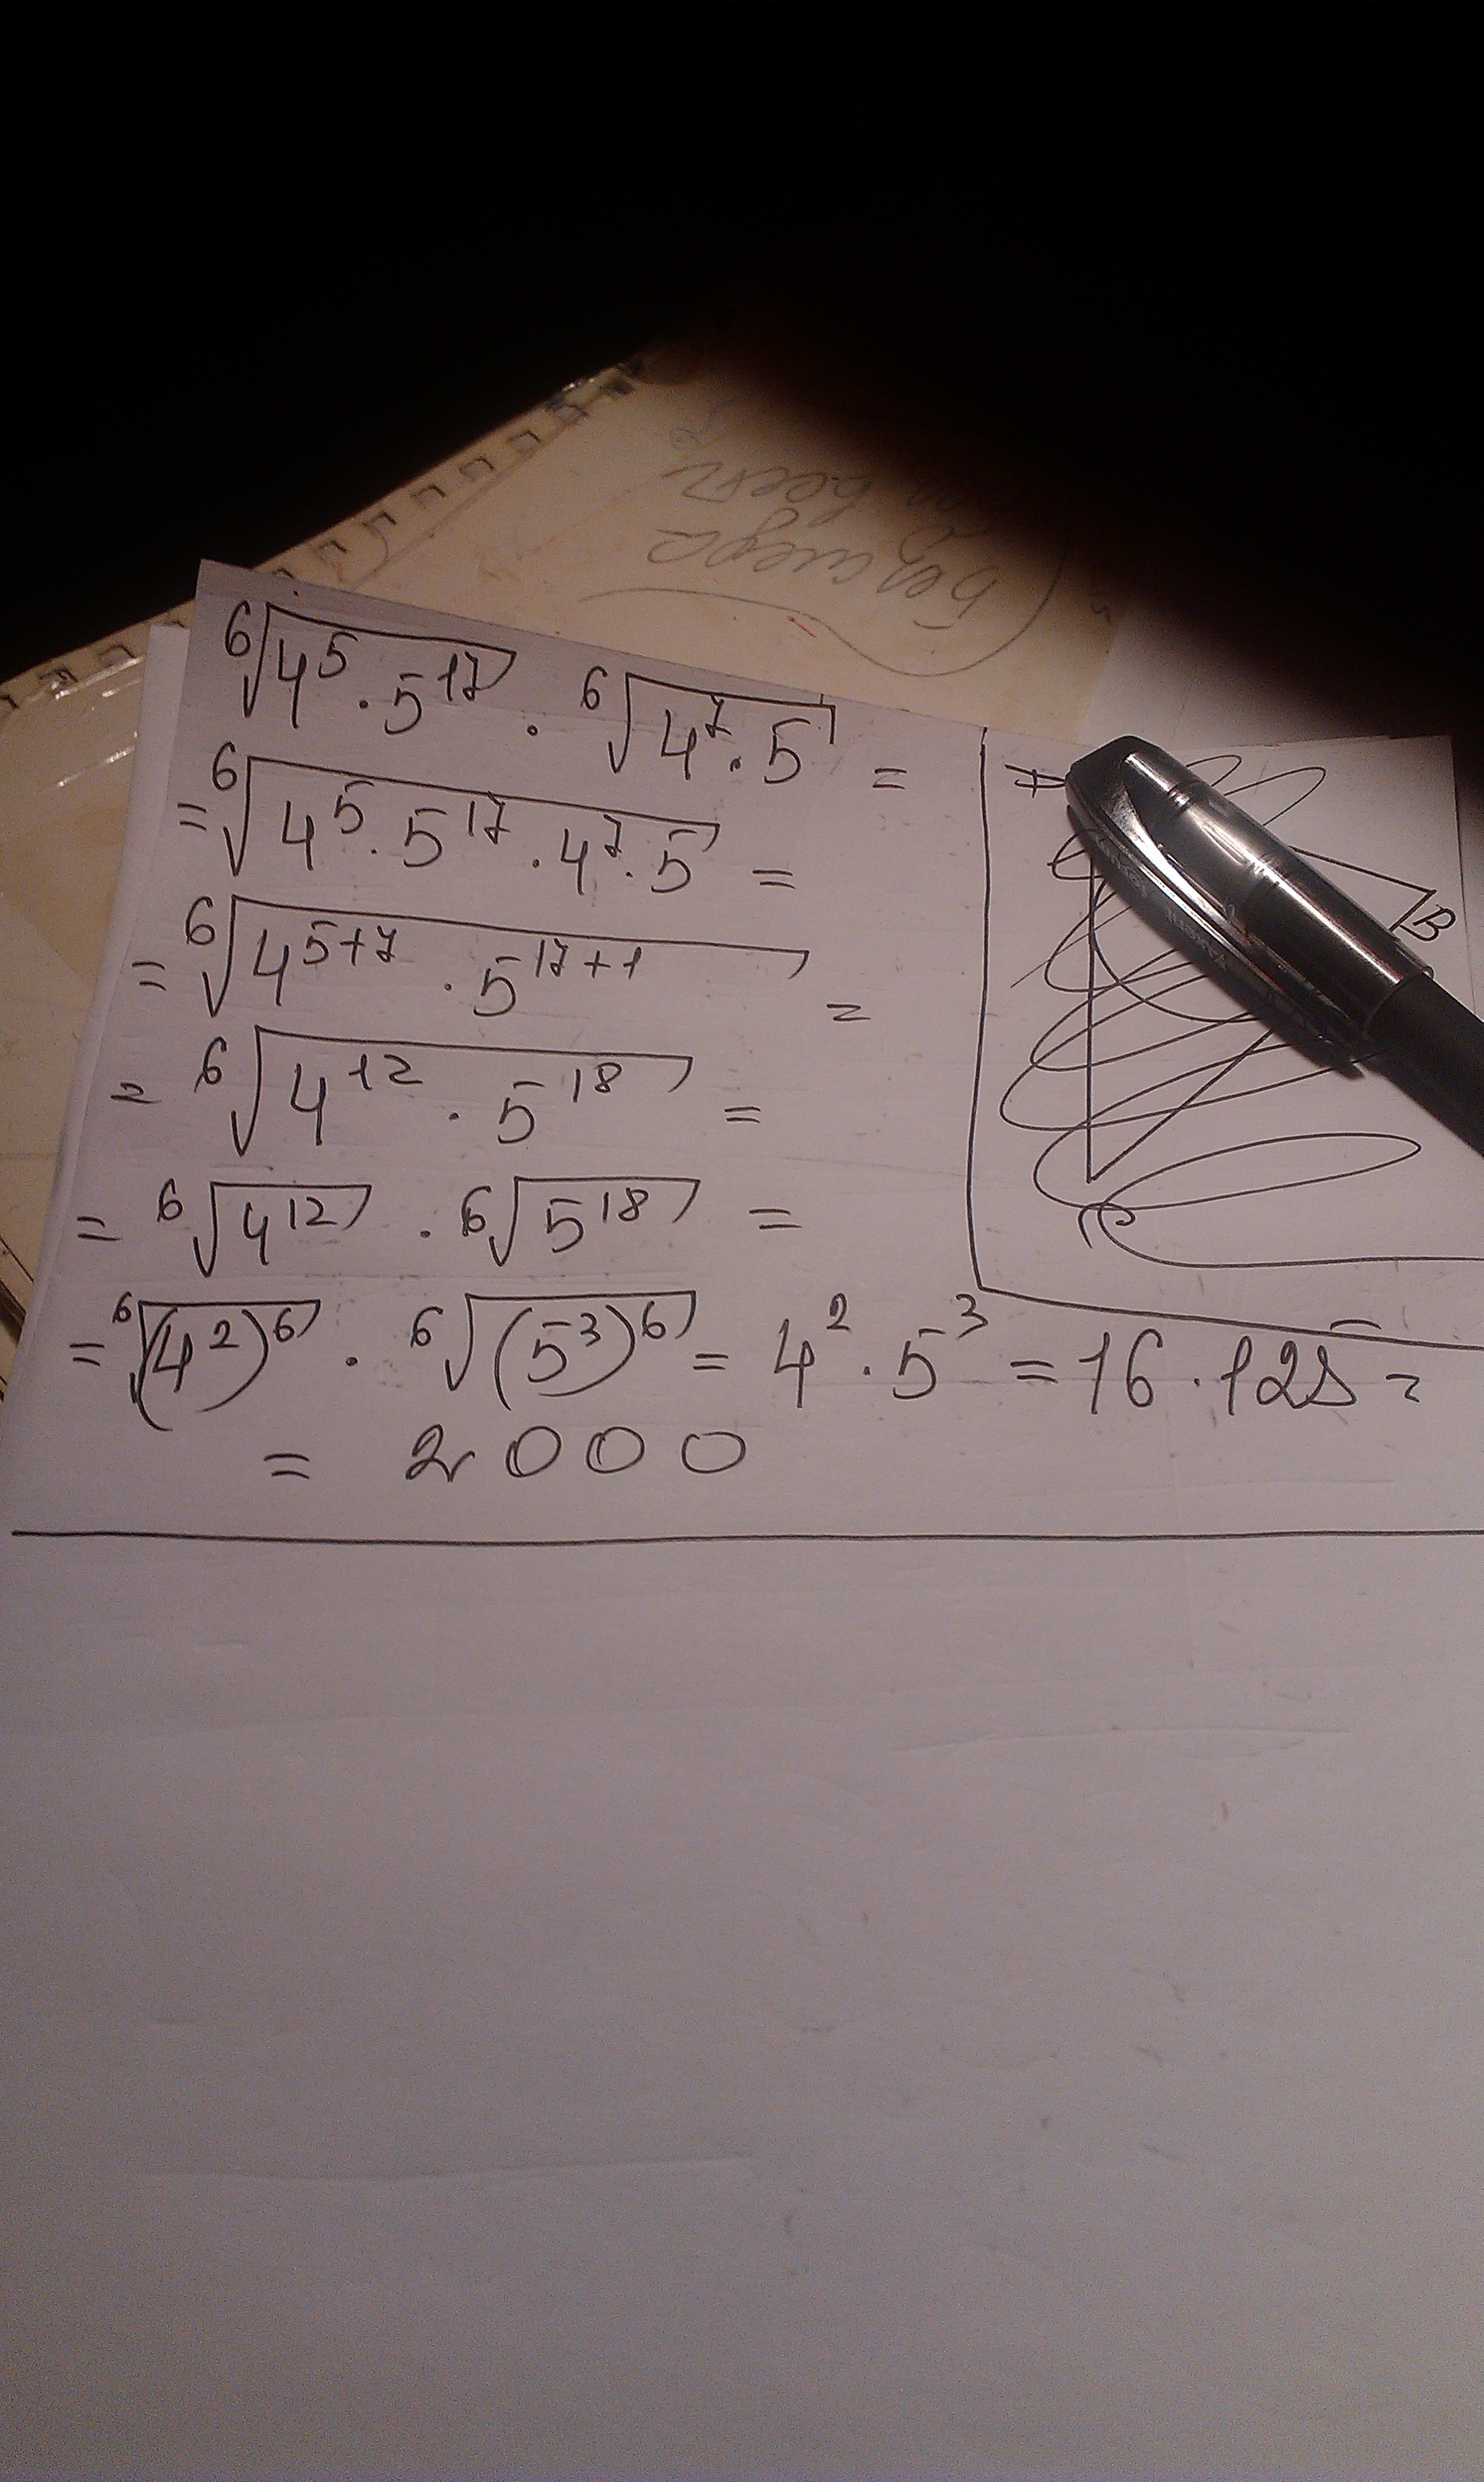 ⁶√(4⁵ · 5¹⁷) · ⁶√(4⁷ · 5) =
= ⁶√(4⁵ · 5¹⁷ · 4⁷ · 5) =
= ⁶√(4⁵⁺⁷ · 5¹⁷⁺¹) =
= ⁶√(4¹² · 5¹⁸) =
= ⁶√(4¹²) · ⁶√(5¹⁸) =
= ⁶√((4²)⁶) · ⁶√((5³)⁶) = 4² · 5³ = 16 · 125 =
= 2000
B